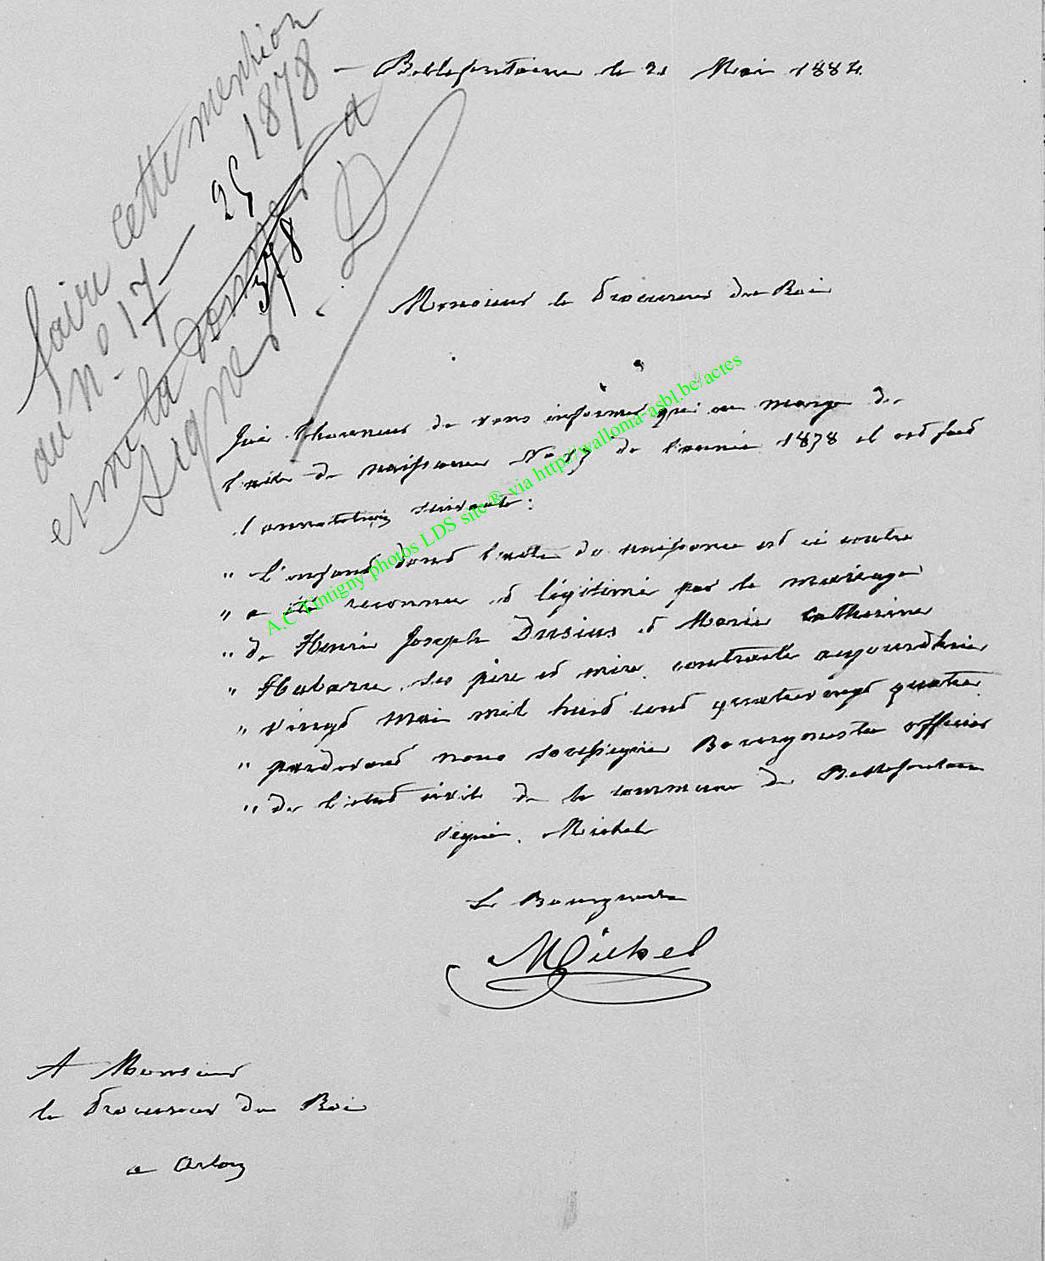 faire cette mention
au n° 17 – 25 1878
et me la donner a 378
signer.
Bellefontaine le 21 Mai 1884
Monsieur le Procureur du Roi
J'ai l'honneur de vous informer qu'en marge de
l'acte de naissance No 17 de l'année 1878 il est fait
l'annotation suivante :
" L'enfant dont l'acte de naissance est ci contre
" a été reconnu et légitimé par le mariage
" de Henri Joseph Dusius et Marie Catherine
" ses père et mère, contracté aujourd'hui
" vingt Mai mil huit cent quatre vingt quatre
" pardevant nous soussigné Bourgmestre officier
" de l'état civil de la commune de Bellefontaine
signé. Michel
Le Bourgmestre
Michel
A Monsieur
le Procureur du Roi
a Arlon
A.C Tintigny photos LDS site® via http://walloma-asbl.be/actes